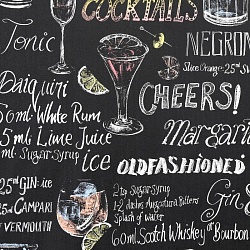 COCKTAILS
Tonic
NEGRON
Slice Orange: 25ml S
Daiquiri
CHEERS!
60ml White Rum
5ml Lime Juice
ml Sugar Syrup
ice
Margari
OLDFASHIONED
25ml GIN: ice
25ml CAMPARI
VERMOUTH
2 tsp Sugar Syrup
1-2 dashes Angostura Bitters
Splash of water
60ml Scotch Whiskey or Bourbon
Gin &